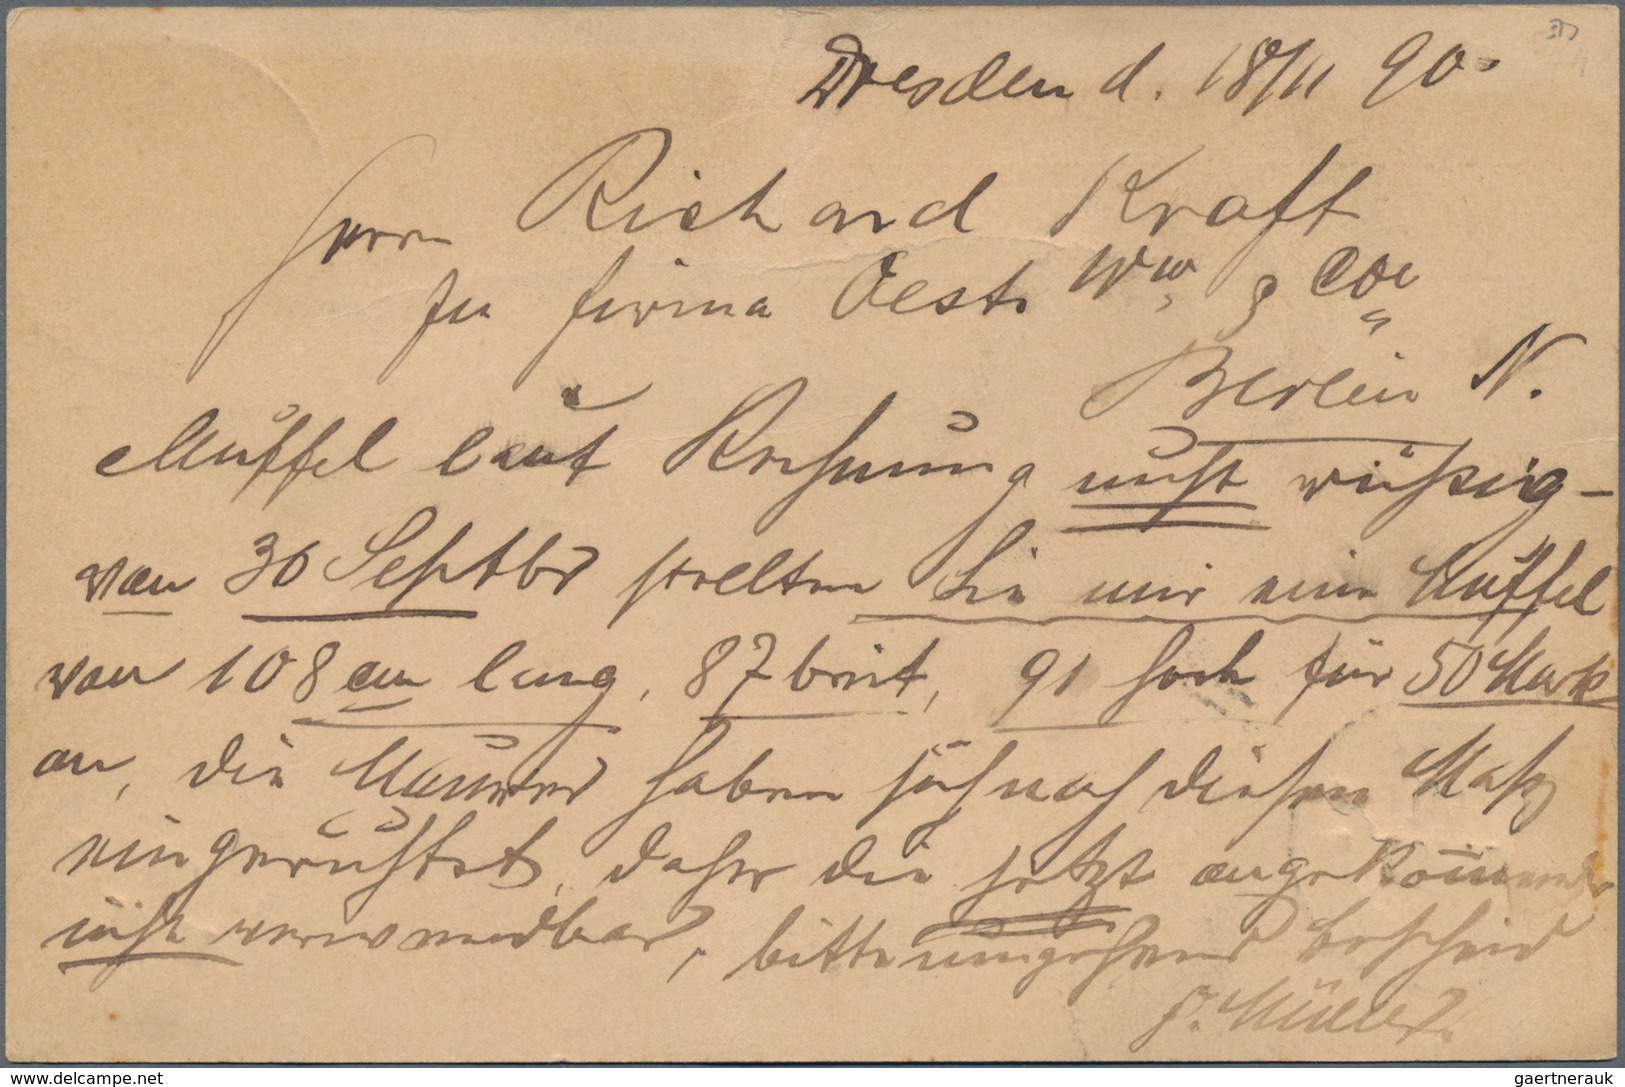 Dresden d. 18/11 90.
Herrn Richard Kraft
In firma Oest Ww & Co
Berlin N.
Muffel laut Rechnung nicht
von 30 Septbr stellten Sie mir eine Muffel
von 108 cm lang, 87 breit, 91 hoch für 50 Mark
an, die Maurer haben sich nach diesen Maß
eingerichtet, daher die jetzt angekommene
nicht verwendbar, bitte umgehend bescheid
Müller.
delcampe.net
gaertnerauk